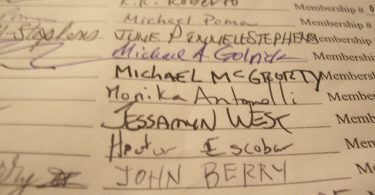 R.R. Roberto Membership # 0
Michael Poma Membership #
Stephens JUNE PINNELL-STEPHENS Membership
Michael A. Golrick Membership
MICHAEL MCGRORTY Membership
Monika Antonelli Membership
JESSAMYN WEST Membership
Hector Escobar Member
JOHN BERRY Member